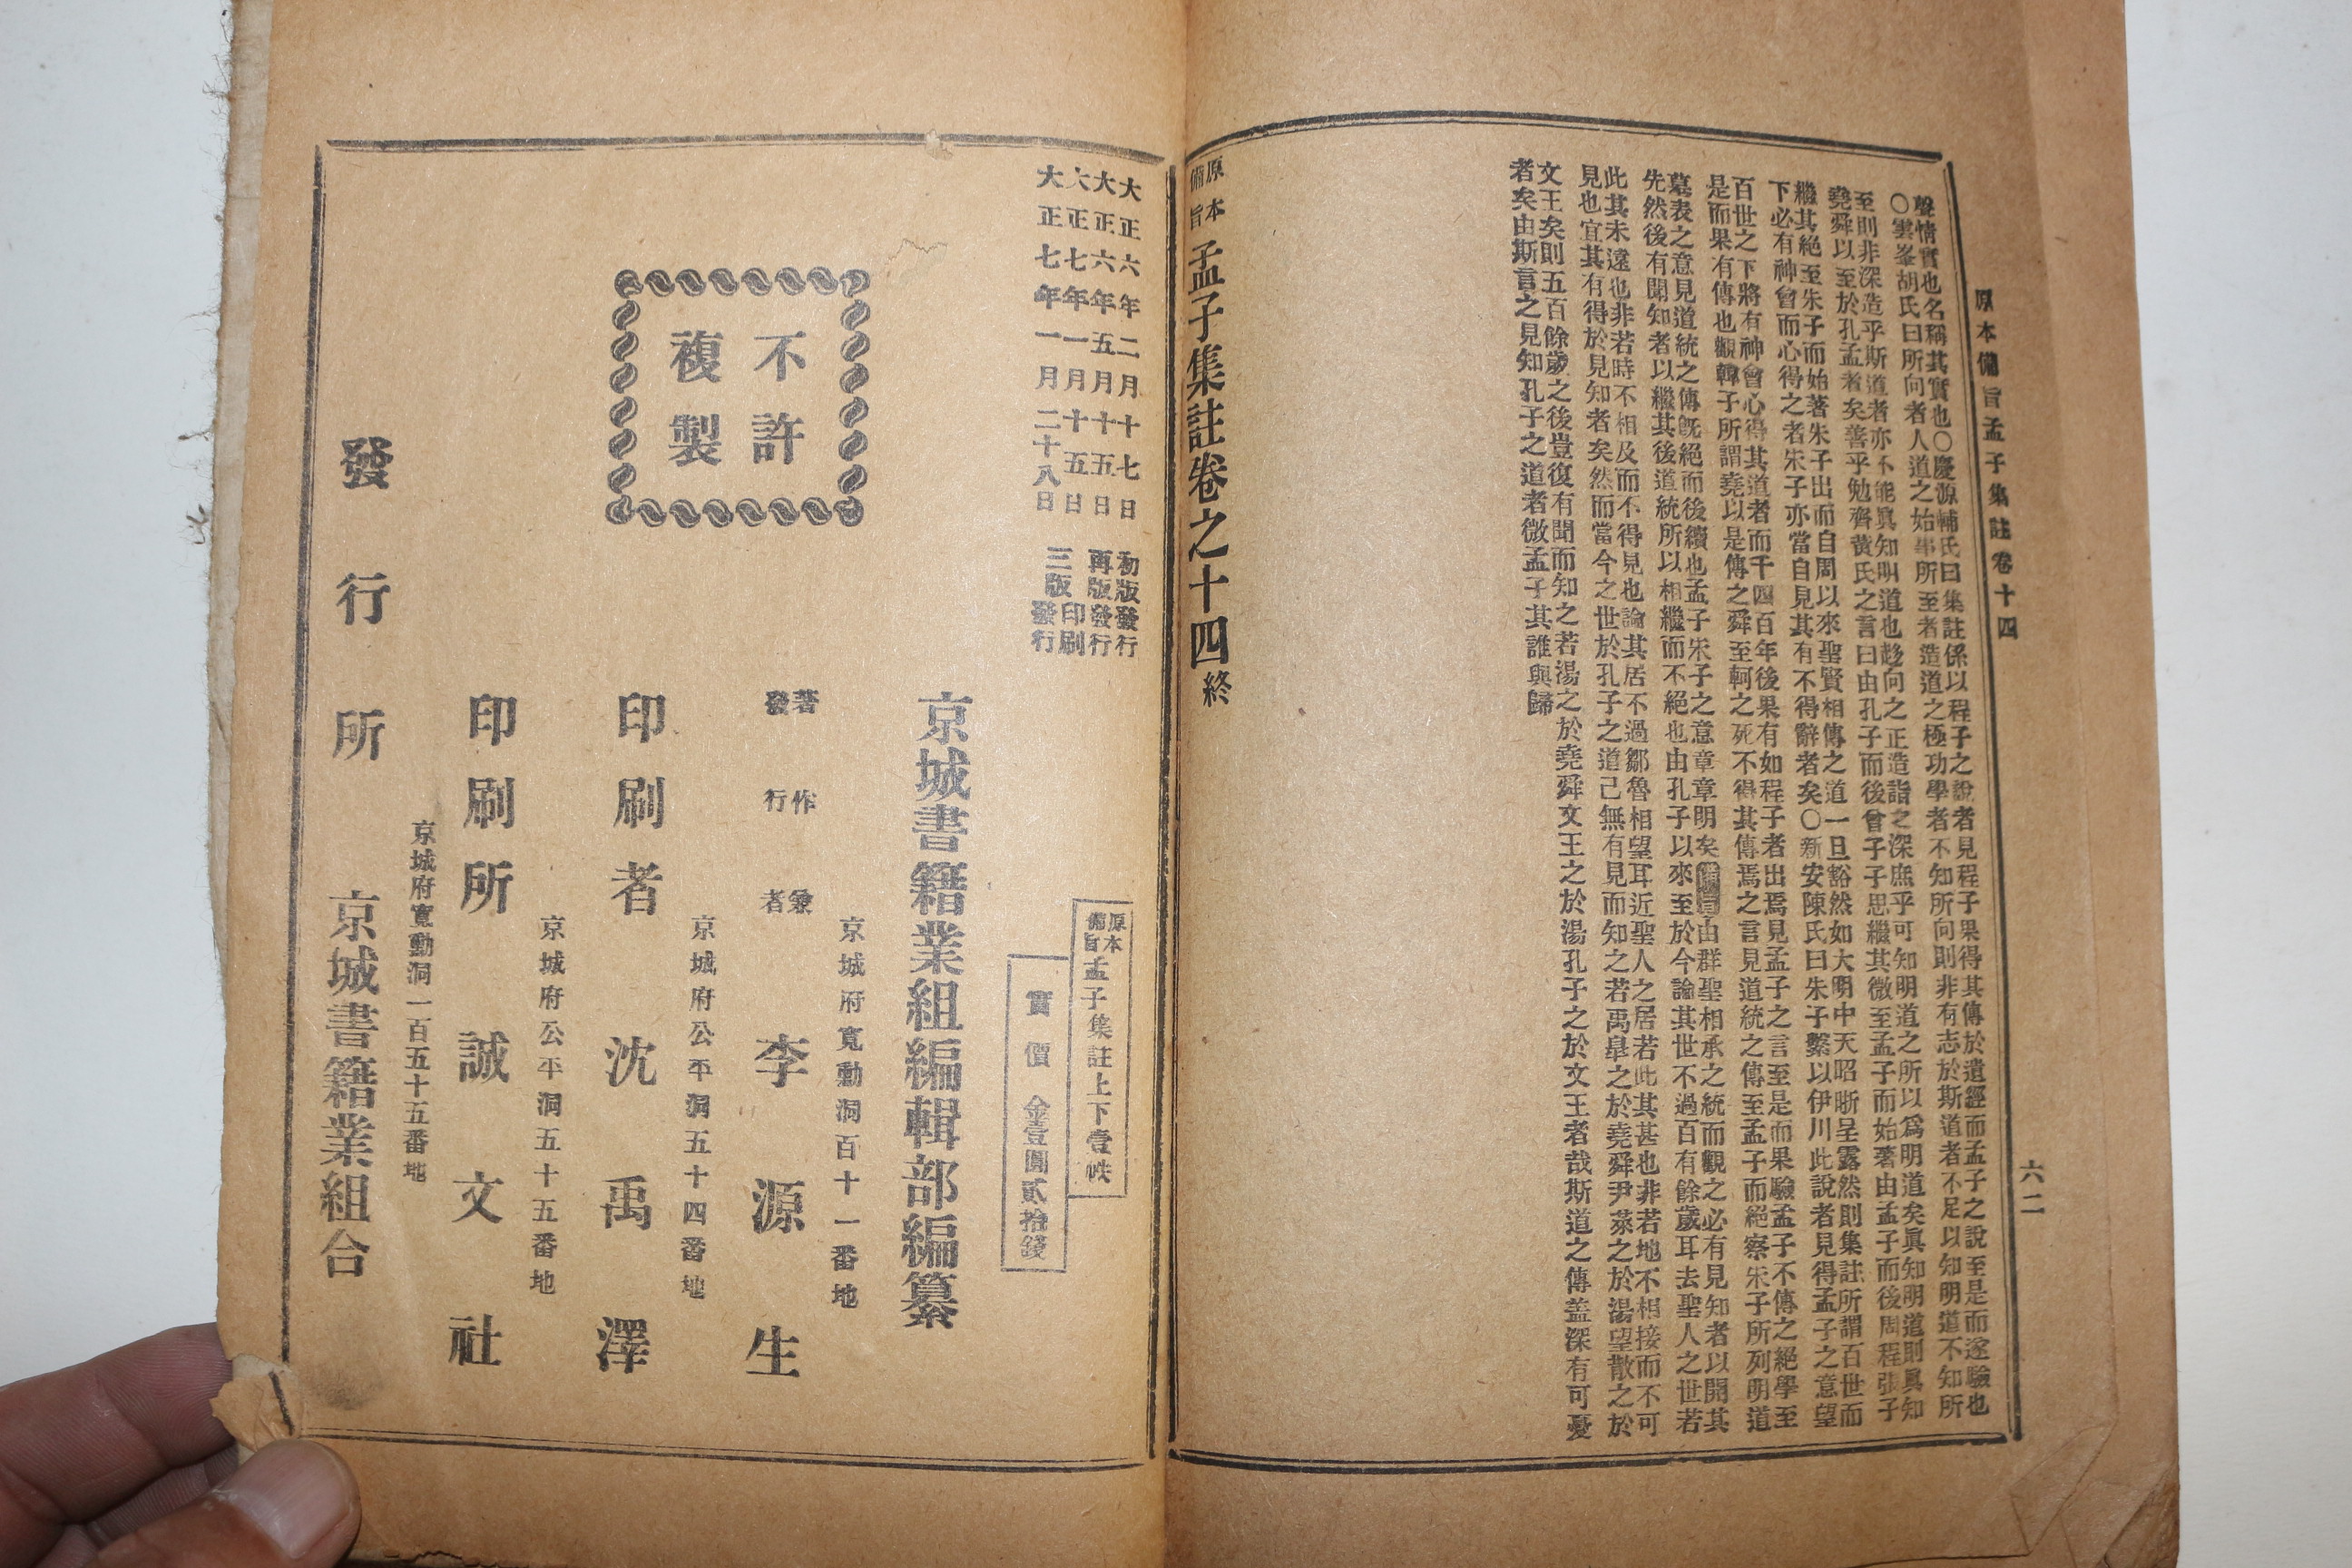 原本備旨孟子集註卷十四
六二
聲情實也名稱其實也〇慶源輔氏曰集註係以程子之說者見程子果得其傳於遺經而孟子之說至是而遂驗也
〇雲峯胡氏曰所向者人道之始事所至者造道之極功學者不知所向則非有志於斯道者不足以知明道不知所
至則非深造乎斯道者亦不能眞知明道也趨向之正造詣之深庶乎可知明道之所以爲明道矣眞知明道則眞知
堯舜以至於孔孟者矣善乎勉齋黃氏之言曰由孔子而後曾子子思繼其微至孟子而始著由孟子而後周程張子
繼其絕至朱子而始著朱子出而自周以來聖賢相傳之道一旦豁然如大明中天昭晣呈露然則集註所謂百世而
下必有神會而心得之者朱子亦當自見其有不得辭者矣〇新安陳氏曰朱子繫以伊川此說者見得孟子之意望
百世之下將有神會心得其道者而千四百年後果有如程子者出焉見孟子之言至是而果驗孟子不傳之絕學至
是而果有傳也觀韓子所謂堯以是傳之舜至軻之死不得其傳焉之言見道統之傳至孟子而絕察朱子所列明道
墓表之意見道統之傳旣絕而後續也孟子朱子之意章章明矣備旨由群聖相承之統而觀之必有見知者以開其
先然後有聞知者以繼其後道統所以相繼而不絕也由孔子以來至於今論其世不過百有餘歲耳去聖人之世若
此其未遠也非若時不相及而不得見也論其居不過鄒魯相望耳近聖人之居若此其甚也非若地不相接而不可
見也宜其有得於見知者矣然而當今之世於孔子之道己無有見而知之若禹皐之於堯舜尹萊之於湯望散之於
文王矣則五百餘歲之後豈復有聞而知之若湯之於堯舜文王之於湯孔子之於文王者哉斯道之傳盖深有可憂
者矣由斯言之見知孔子之道者微孟子其誰與歸
原本備旨孟子集註卷之十四終
大正六年二月十七日 初版發行
大正六年五月十五日 再版發行
大正七年一月十五日 三版印刷
大正七年一月二十八日 發行
不許
複製
原本備旨孟子集註上下壹帙
實價 金壹圓貳拾錢
京城書籍業組編輯部編纂
京城府寬勳洞百十一番地
著作兼
發行者 李源生
京城府公平洞五十四番地
印刷者 沈禹澤
京城府公平洞五十五番地
印刷所 誠文社
京城府寬勳洞一百五十五番地
發行所 京城書籍業組合